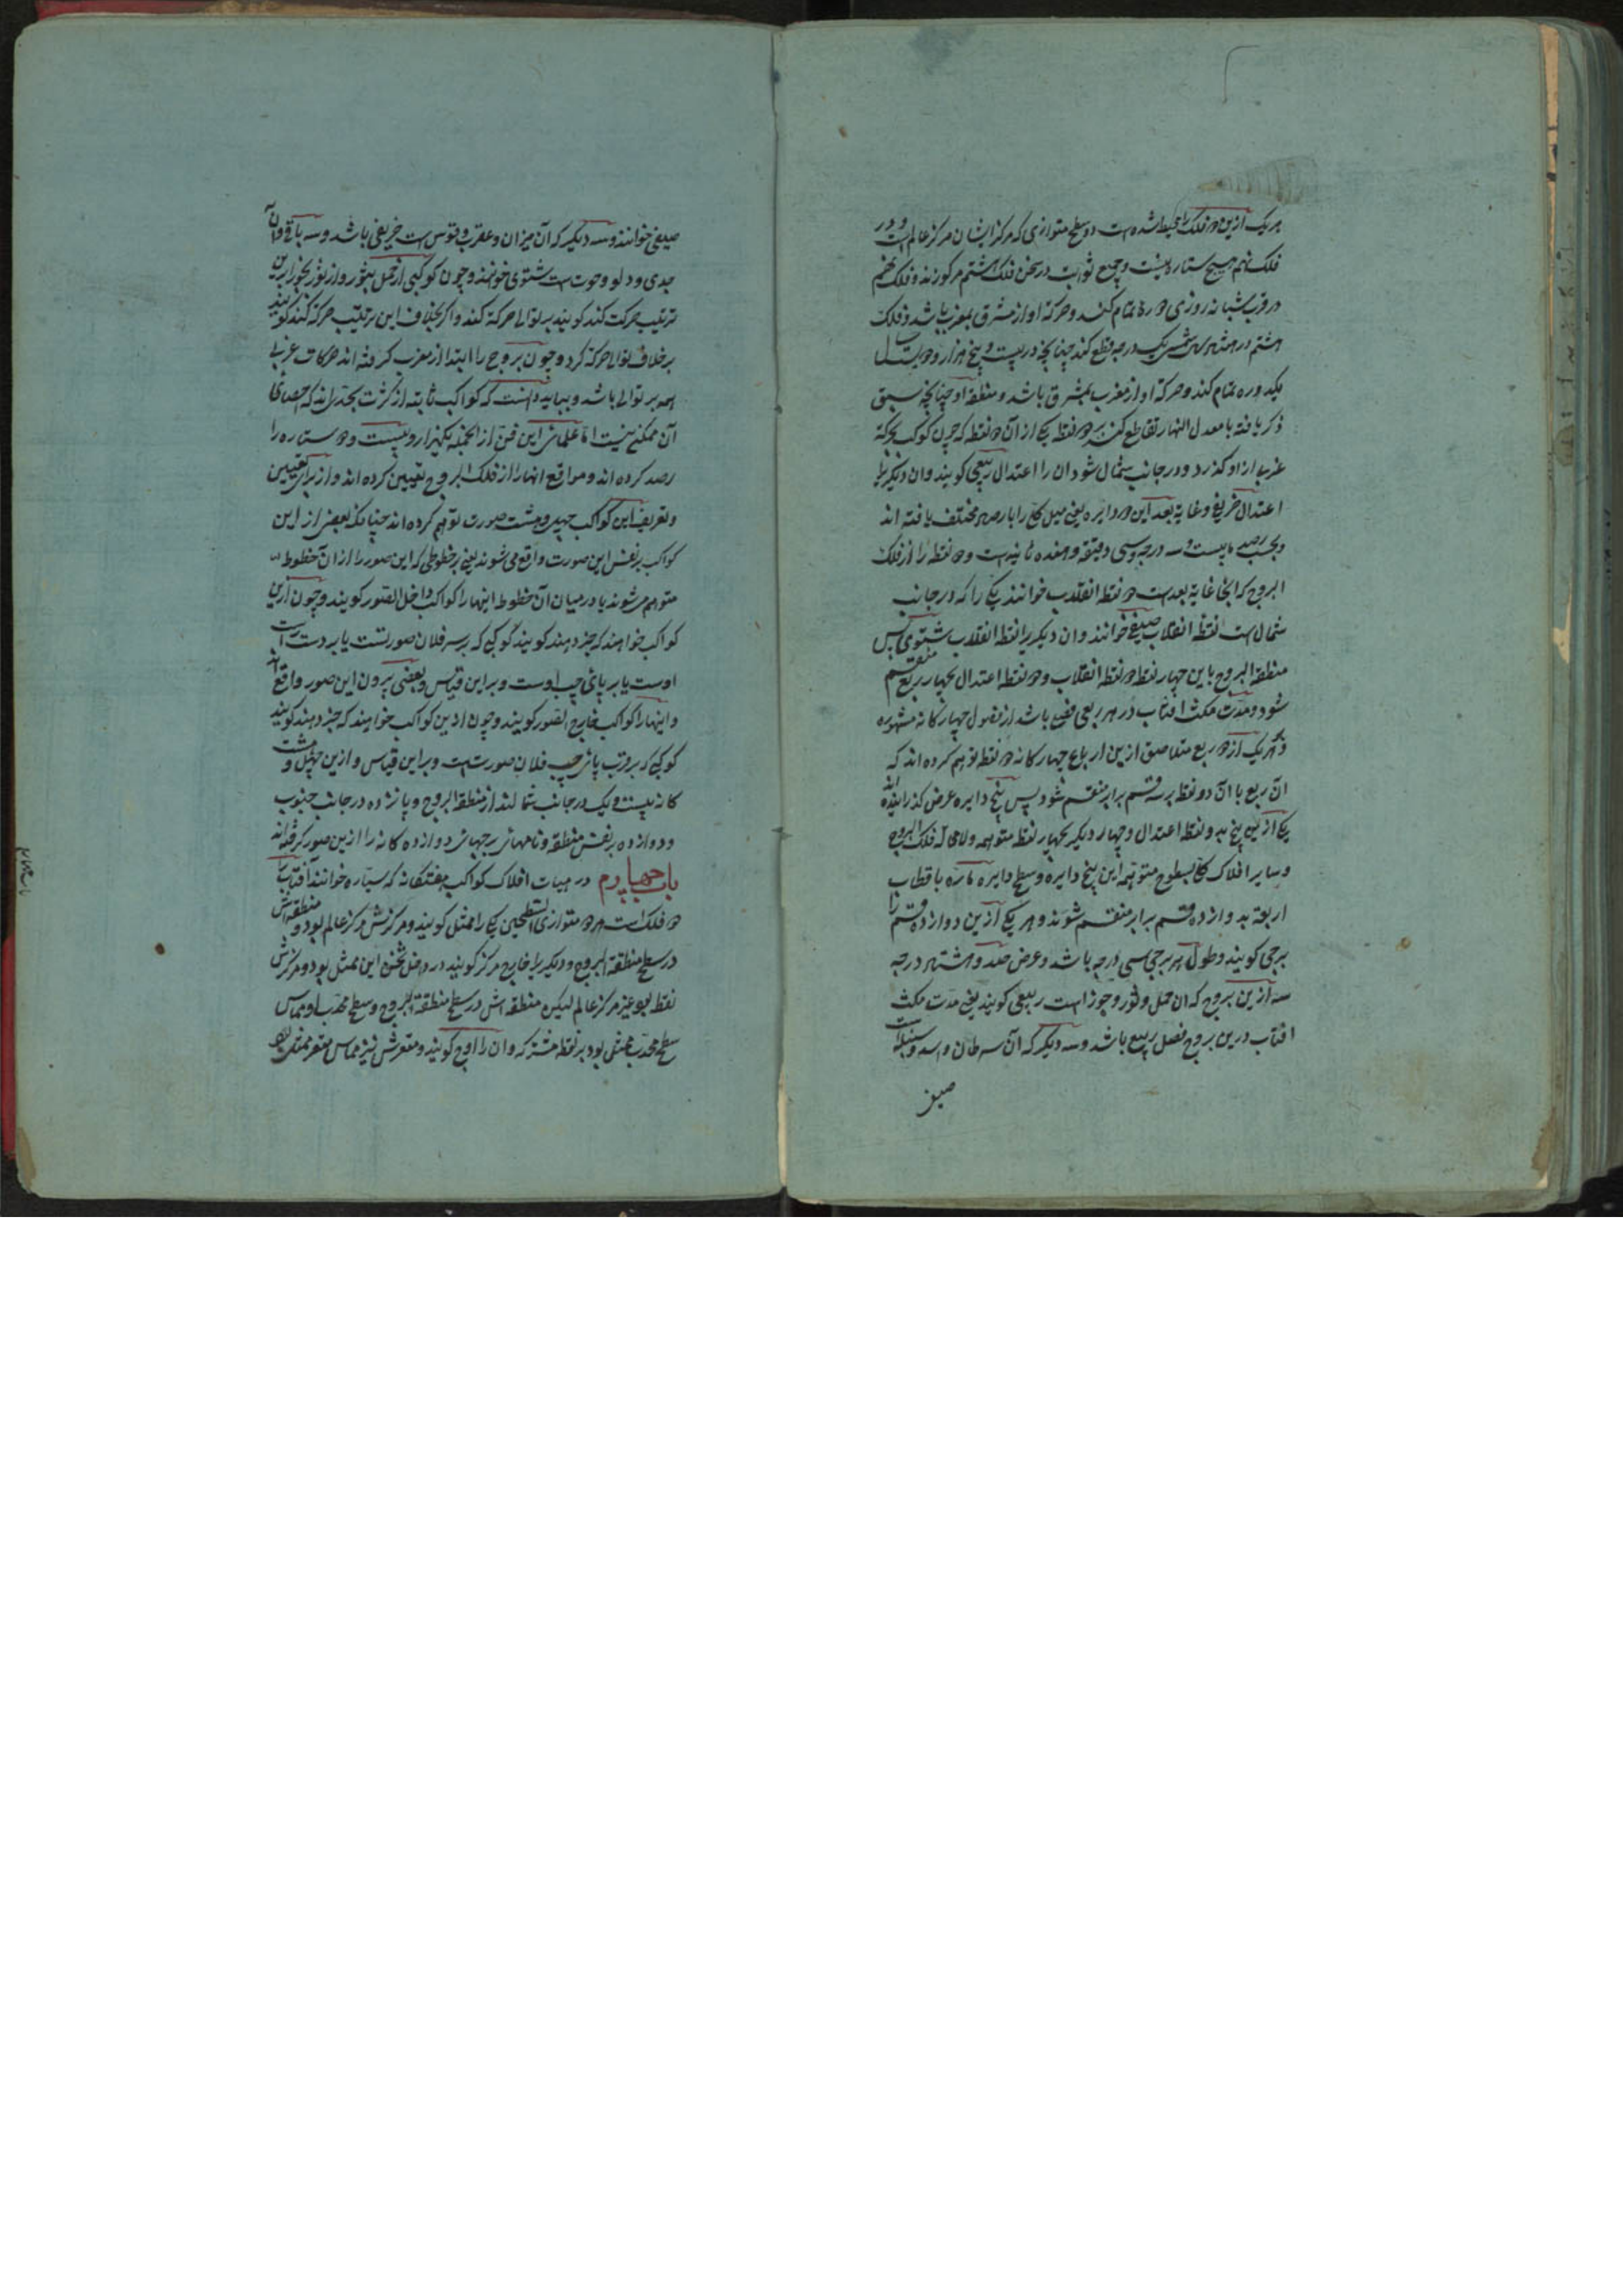 هریک ازین دو فلک را محیط شده است دو سطح متوازی که مرکز ایشان مرکز عالم است و در
فلک نهم هیچ ستاره نیست و جمیع ثوابت در ثخن فلک هشتم مرکوزند و فلک نهم
در قرب شبانه روزی دوره تمام کند و حرکة او از مشرق بمغرب باشد و فلک
هشتم در هشتاد سال شمسی یک درجه قطع کند چنانچه در بیست و پنج هزار و دویست سال
یکدوره تمام کند و حرکة او از مغرب بمشرق باشد و منطقه او چنانچه سبق
ذکر یافته با معدل النهار تقاطع کند بر دو نقطه یکی از آن دو نقطه که چون کوکب بحرکة
غربی از او گذرد و در جانب شمال شود ان را اعتدال ربیعی گویند وان دیگر را
اعتدال خریفی و غایة بعد این دو دایره یعنی میل کلی را بارصاد مختلف یافته اند
و بحسب رصد ما بیست و سه درجه و سی دقیقه و هفده ثانیه است و دو نقطه را از فلک
البروج که انجا غایة بعد است دو نقطه انقلاب خوانند یکی را که در جانب
شمال است نقطه انقلاب صیفی خوانند وان دیگر را نقطه انقلاب شتوی پس
منطقة البروج باین چهار نقطه دو نقطه انقلاب و دو نقطه اعتدال بچهار ربع منقسم
شود و مدت مکث افتاب در هر ربعی فصلی باشد از فصول چهارکانه مشهوره
و بر هریک از دو ربع متلاصق ازین ارباع چهارکانه دو نقطه توهم کرده اند که
ان ربع با ان دو نقطه بسه قسم برابر منقسم شود پس پنج دایره عرض گذرانیده اند
یکی ازین پنج بدو نقطه اعتدال و چهار دیگر بچهار نقطه متوهمه ولا محاله فلک البروج
و سایر افلاک کلی بسطوح متوهمه این پنج دایره و سطح دایره ماره باقطاب
اربعة بدوازده قسم برابر منقسم شوند و هر یکی ازین دوازده قسم را
برجی گویند و طول هر برجی سی درجه باشد و عرض صد و هشتاد درجه
سه ازین بروج که ان حمل و ثور و جوزاست ربیعی گویند یعنی مدت مکث
افتاب درین بروج فصل ربیع باشد و سه دیگر که آن سرطان و اسد و سنبله است
صیفی
صیفی خوانند و سه دیگر که آن میزان و عقرب و قوس است خریفی باشد و سه باقی و آن
جدی و دلو و حوت است شتوی خوانند و چون کوکبی از حمل بثور و از ثور بجوزا برین
ترتیب حرکت کند گویند بر توالی حرکة کند و اگر بخلاف این ترتیب حرکة کند گویند
بر خلاف توالی حرکة کرد و چون بروج را ابتدا از مغرب گرفته اند حرکات غربی
همه بر توالی باشد و بباید دانست که کواکب ثابته از کثرت بحدی اند که احصای
آن ممکن نیست اما علمای این فن از انجمله یکهزار و بیست و دو ستاره را
رصد کرده اند و مواقع انها را از فلک البروج تعیین کرده اند و از برای تعیین
و تعریف این کواکب چهل و هشت صورت توهم کرده اند چنانکه بعضی از این
کواکب بر نفس این صورت واقع می شوند یعنی بر خطوطی که این صور را از ان خطوط
متوهم می شوند یا در میان آن خطوط اینها را کواکب داخل الصور گویند و چون ازین
کواکب خواهند که چیز دهند گویند کوکبی که بر سر فلان صورتست یا بر دست راست
اوست یا بر پای چپ اوست و بر این قیاس و بعضی بیرون این صور واقع اند
و اینها را کواکب خارج الصور گویند و چون ازین کواکب خواهند که چیز دهند گویند
کوکبی که بر قرب پای چپ فلان صورت است و براین قیاس و ازین چهل و هشت
کانه بیست و یک در جانب شمالند از منطقة البروج و پانزده در جانب جنوب
و دوازده بر نفس منطقه و نامهای برجهای دوازده کانه را ازین صور گرفته اند
باب چهارم در هیات افلاک کواکب هفتگانه که سیاره خوانند آفتاب را
دو فلک است هر دو متوازی السطحین یکی را ممثل گویند و مرکزش مرکز عالم بود و منطقه اش
در سطح منطقة البروج و دیگر را خارج مرکز گویند در داخل ثخن این ممثل بود و مرکزش
نقطه بود غیر مرکز عالم لیکن منطقه اش در سطح منطقة البروج و سطح محدب او مماس
سطح محدب ممثل بود بر نقطه مشترکه وان را اوج گویند و مقعرش نیز مماس مقعر ممثل بود